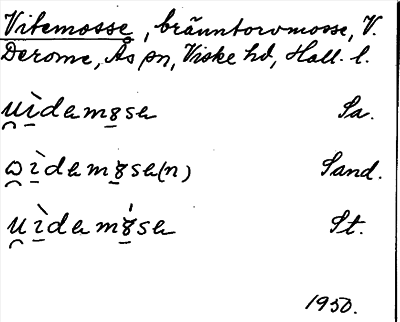 Vitemosse, bränntorvmosse, V.
Derome, Ås sn, Viske hd, Hall. l.
Sa.
Sand.
St.
1950.